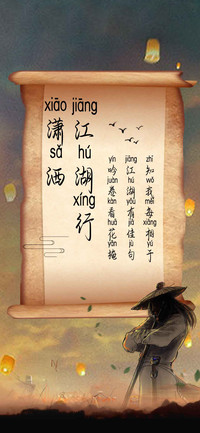 xiāo sǎ
潇洒
jiāng hú xíng
江湖行
yín juàn kàn huā yǎn
吟卷看花掩
jiāng hú yǒu jiā jù
江湖有佳句
zhī wǒ měi xiāng yú
知我每相于